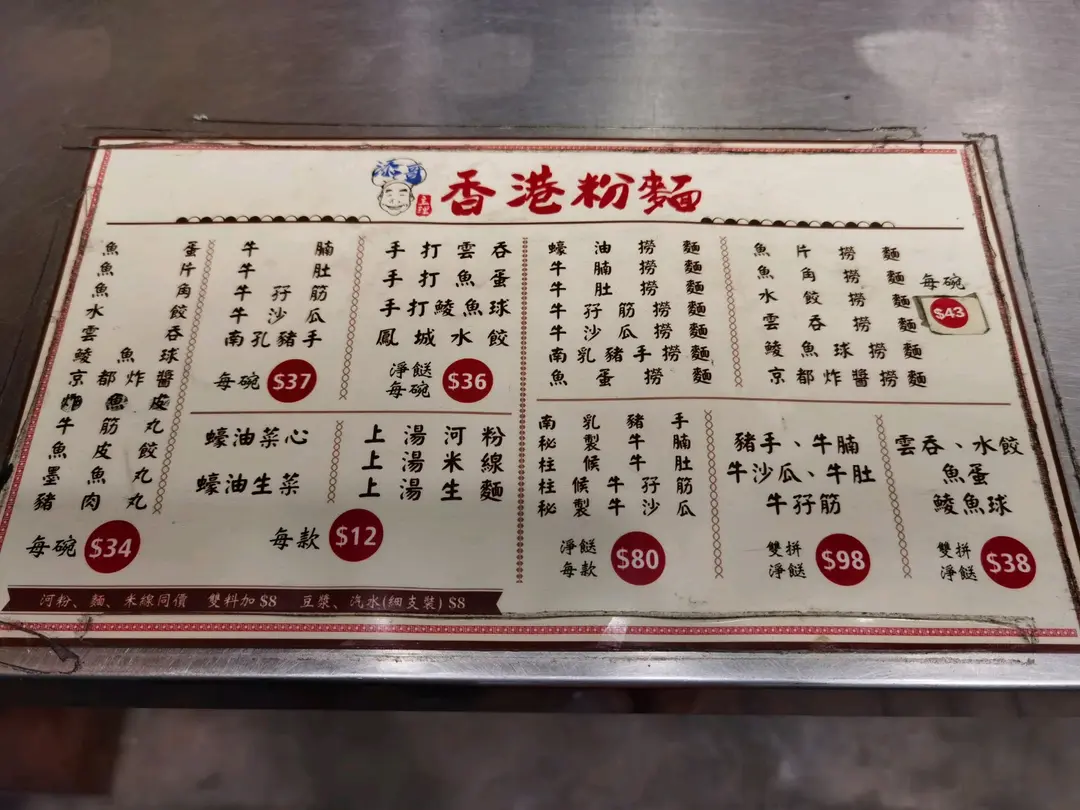 添哥
主理
香港粉麵
魚蛋
魚片
魚角
水餃
雲吞
鯪魚球
京都炸醬
炸魚皮
牛筋丸
魚皮餃
墨魚丸
豬肉丸
每碗 $34
牛腩
牛肚
牛孖筋
牛沙瓜
南孔豬手
每碗 $37
手打雲吞
手打魚蛋
手打鯪魚球
鳳城水餃
淨餸
每碗 $36
蠔油菜心
蠔油生菜
上湯河粉
上湯米線
上湯生麵
每款 $12
蠔油撈麵
牛腩撈麵
牛肚撈麵
牛孖筋撈麵
牛沙瓜撈麵
南乳豬手撈麵
魚蛋撈麵
魚片撈麵
魚角撈麵
水餃撈麵
雲吞撈麵
鯪魚球撈麵
京都炸醬撈麵
每碗
$43
南乳豬手
秘製牛腩
柱候牛肚
柱候牛孖筋
秘製牛沙瓜
淨餸
每款 $80
豬手、牛腩
牛沙瓜、牛肚
牛孖筋
雙拼
淨餸 $98
雲吞、水餃
魚蛋
鯪魚球
雙拼
淨餸 $38
河粉、麵、米線同價 雙料加 $8 豆漿、汽水(細支裝) $8